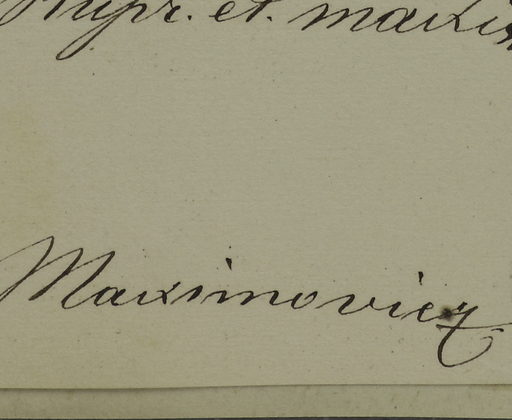 Rupr. et. maxim
Maximovicz